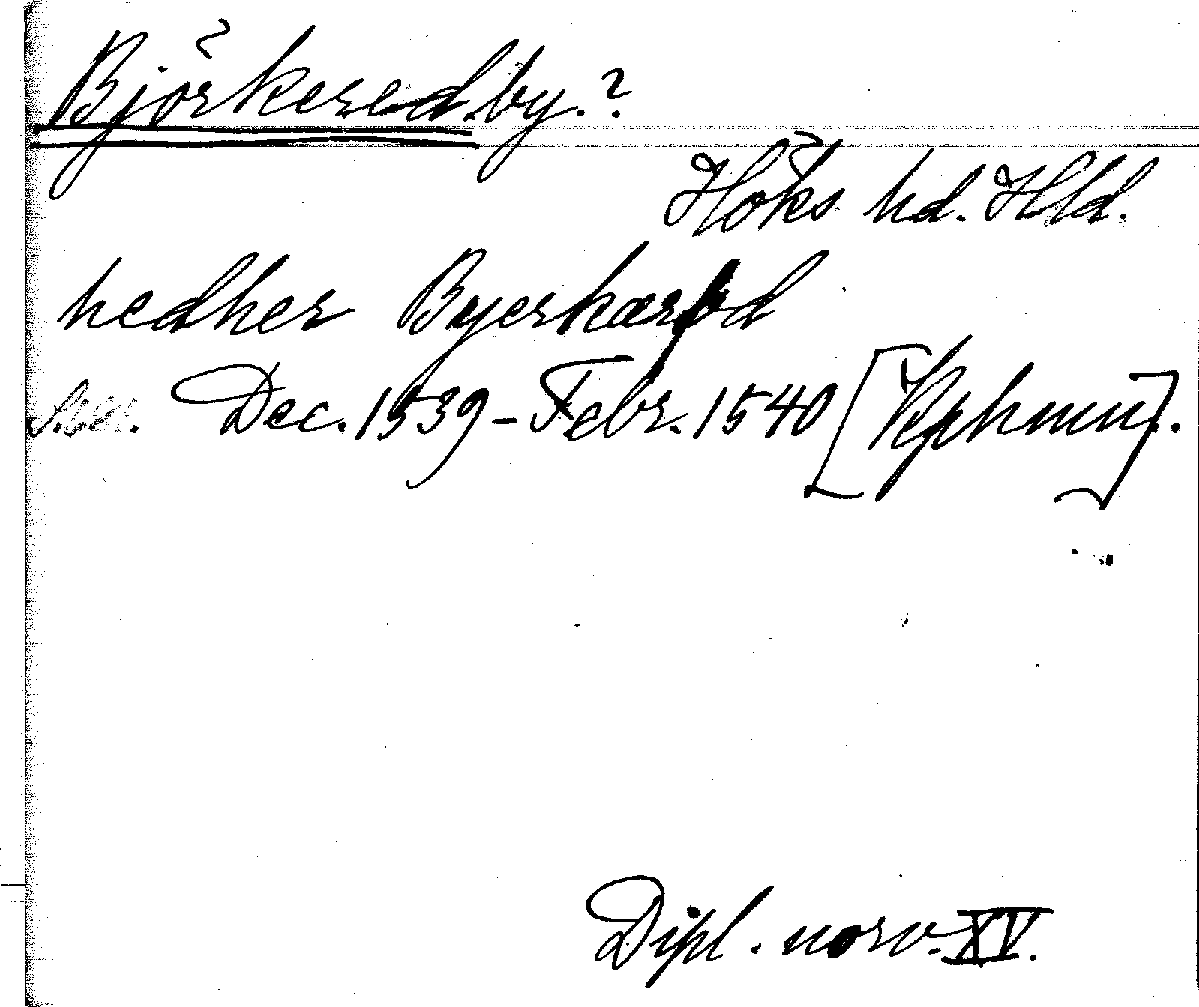 Björkered, by.?
Höks hd. Hld.
nedher Byerkærød
Dec. 1539 – Febr. 1540 [Kphmn].
Dipl. norv. XV.